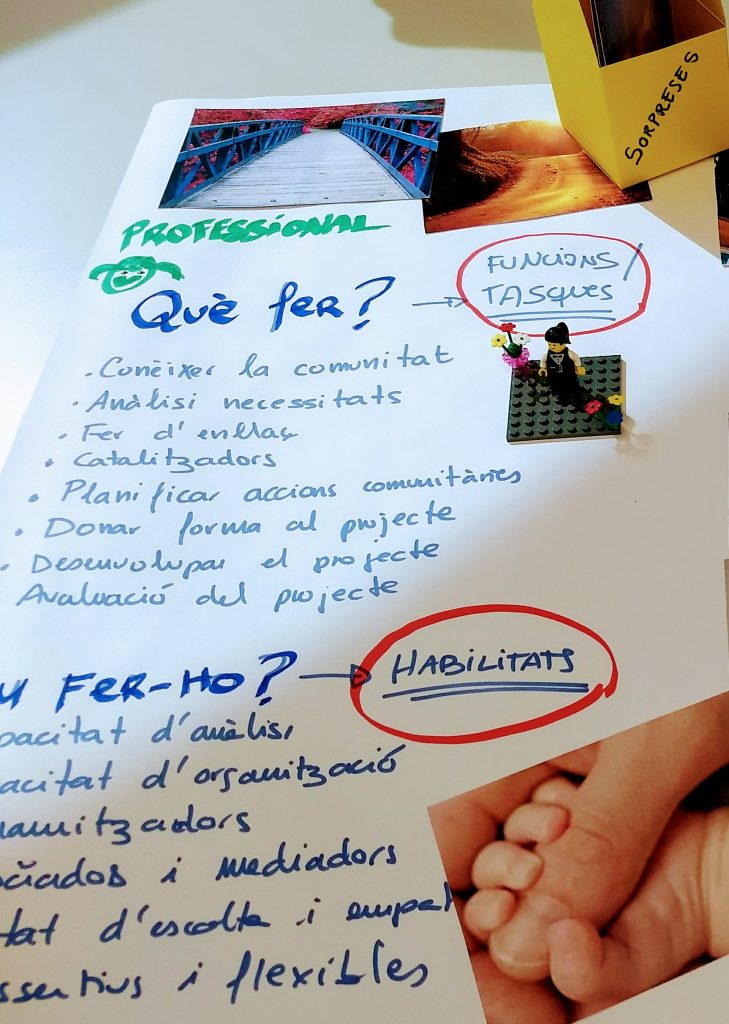 SORPRESES
PROFESSIONAL
Què fer?
FUNCIONS/
TASQUES
· Conèixer la comunitat
· Anàlisi necessitats
· Fer d'enllaç
· Catalitzadors
· Planificar accions comunitàries
· Donar forma al projecte
· Desenvolupar el projecte
Avaluació del projecte
FER-HO?
HABILITATS
pacitat d'anàlisi
acitat d'organització
namitzadors
ociados i mediadors
tat d'escolta i empat
ssertius i flexibles